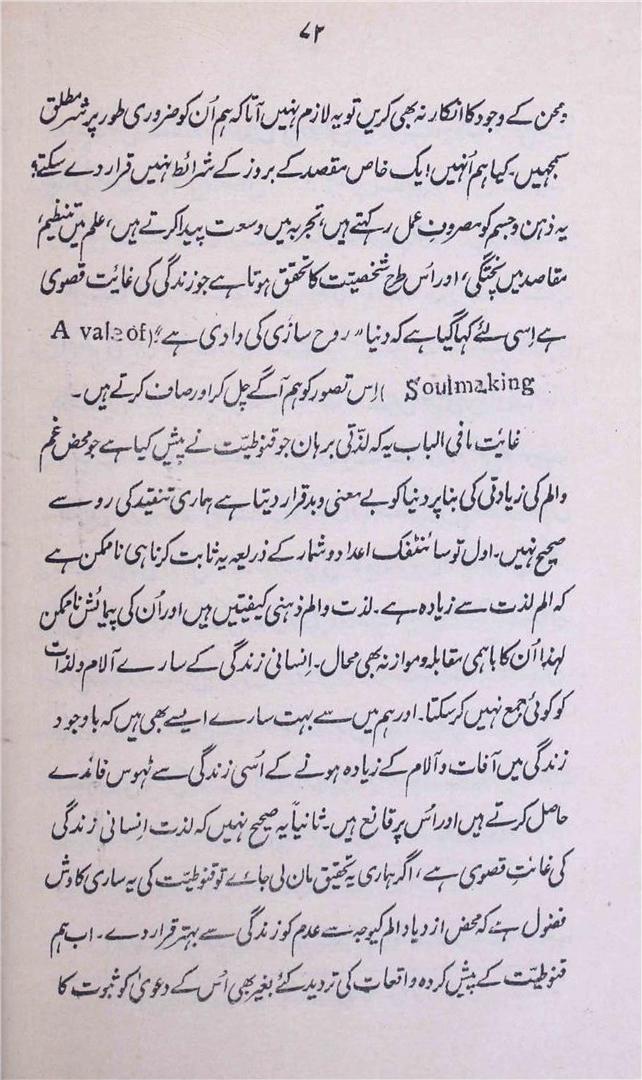 ۷۲
ومحن کے وجود کا انکار نہ بھی کریں تو یہ لازم نہیں آتا کہ ہم اُن کو ضروری طور پر شر مطلق
سمجھیں۔ کیا ہم اُنہیں ایک خاص مقصد کے بروز کے شرائط نہیں قرار دے سکتے؟
یہ ذہن و جسم کو مصروفِ عمل رکھتے ہیں، تجربہ میں وسعت پیدا کرتے ہیں، علم میں تنظیم،
مقاصد میں پختگی، اور اُس طرح شخصیت کا تحقق ہوتا ہے جو زندگی کی غایت قصویٰ
ہے اِسی لئے کہا گیا ہے کہ دنیا "روح سازی کی وادی ہے"! (A vale of
Soulmaking) اِس تصور کو ہم آگے چل کر اور صاف کرتے ہیں۔
غایت مافی الباب یہ کہ لذّتی برہان جو قنوطیّت نے پیش کیا ہے جو محض غم
والم کی زیادتی کی بنا پر دنیا کو بے معنی و بد قرار دیتا ہے ہماری تنقید کی رو سے
صحیح نہیں۔ اول تو سائنٹفک اعداد و شمار کے ذریعہ یہ ثابت کرنا ہی ناممکن ہے
کہ الم لذت سے زیادہ ہے۔ لذت والم ذہنی کیفیتیں ہیں اور اُن کی پیمائش ناممکن
لہذا اُن کا باہمی مقابلہ و موازنہ بھی محال۔ اِنسانی زندگی کے سارے آلام و لذات
کو کوئی جمع نہیں کر سکتا۔ اور ہم میں سے بہت سارے ایسے بھی ہیں کہ باوجود
زندگی میں آفات و آلام کے زیادہ ہونے کے اُسی زندگی سے ٹھوس فائدے
حاصل کرتے ہیں اور اُس پر قانع ہیں۔ ثانیاً یہ صحیح نہیں کہ لذت اِنسانی زندگی
کی غائتِ قصویٰ ہے، اگر ہماری یہ تحقیق مان لی جائے تو قنوطیّت کی یہ ساری کاوش
فضول ہے کہ محض ازدیاد الم کیوجہ سے عدم کو زندگی سے بہتر قرار دے۔ اب ہم
قنوطیّت کے پیش کردہ واقعات کی تردید کئے بغیر بھی اُس کے دعویٰ کو ثبوت کا